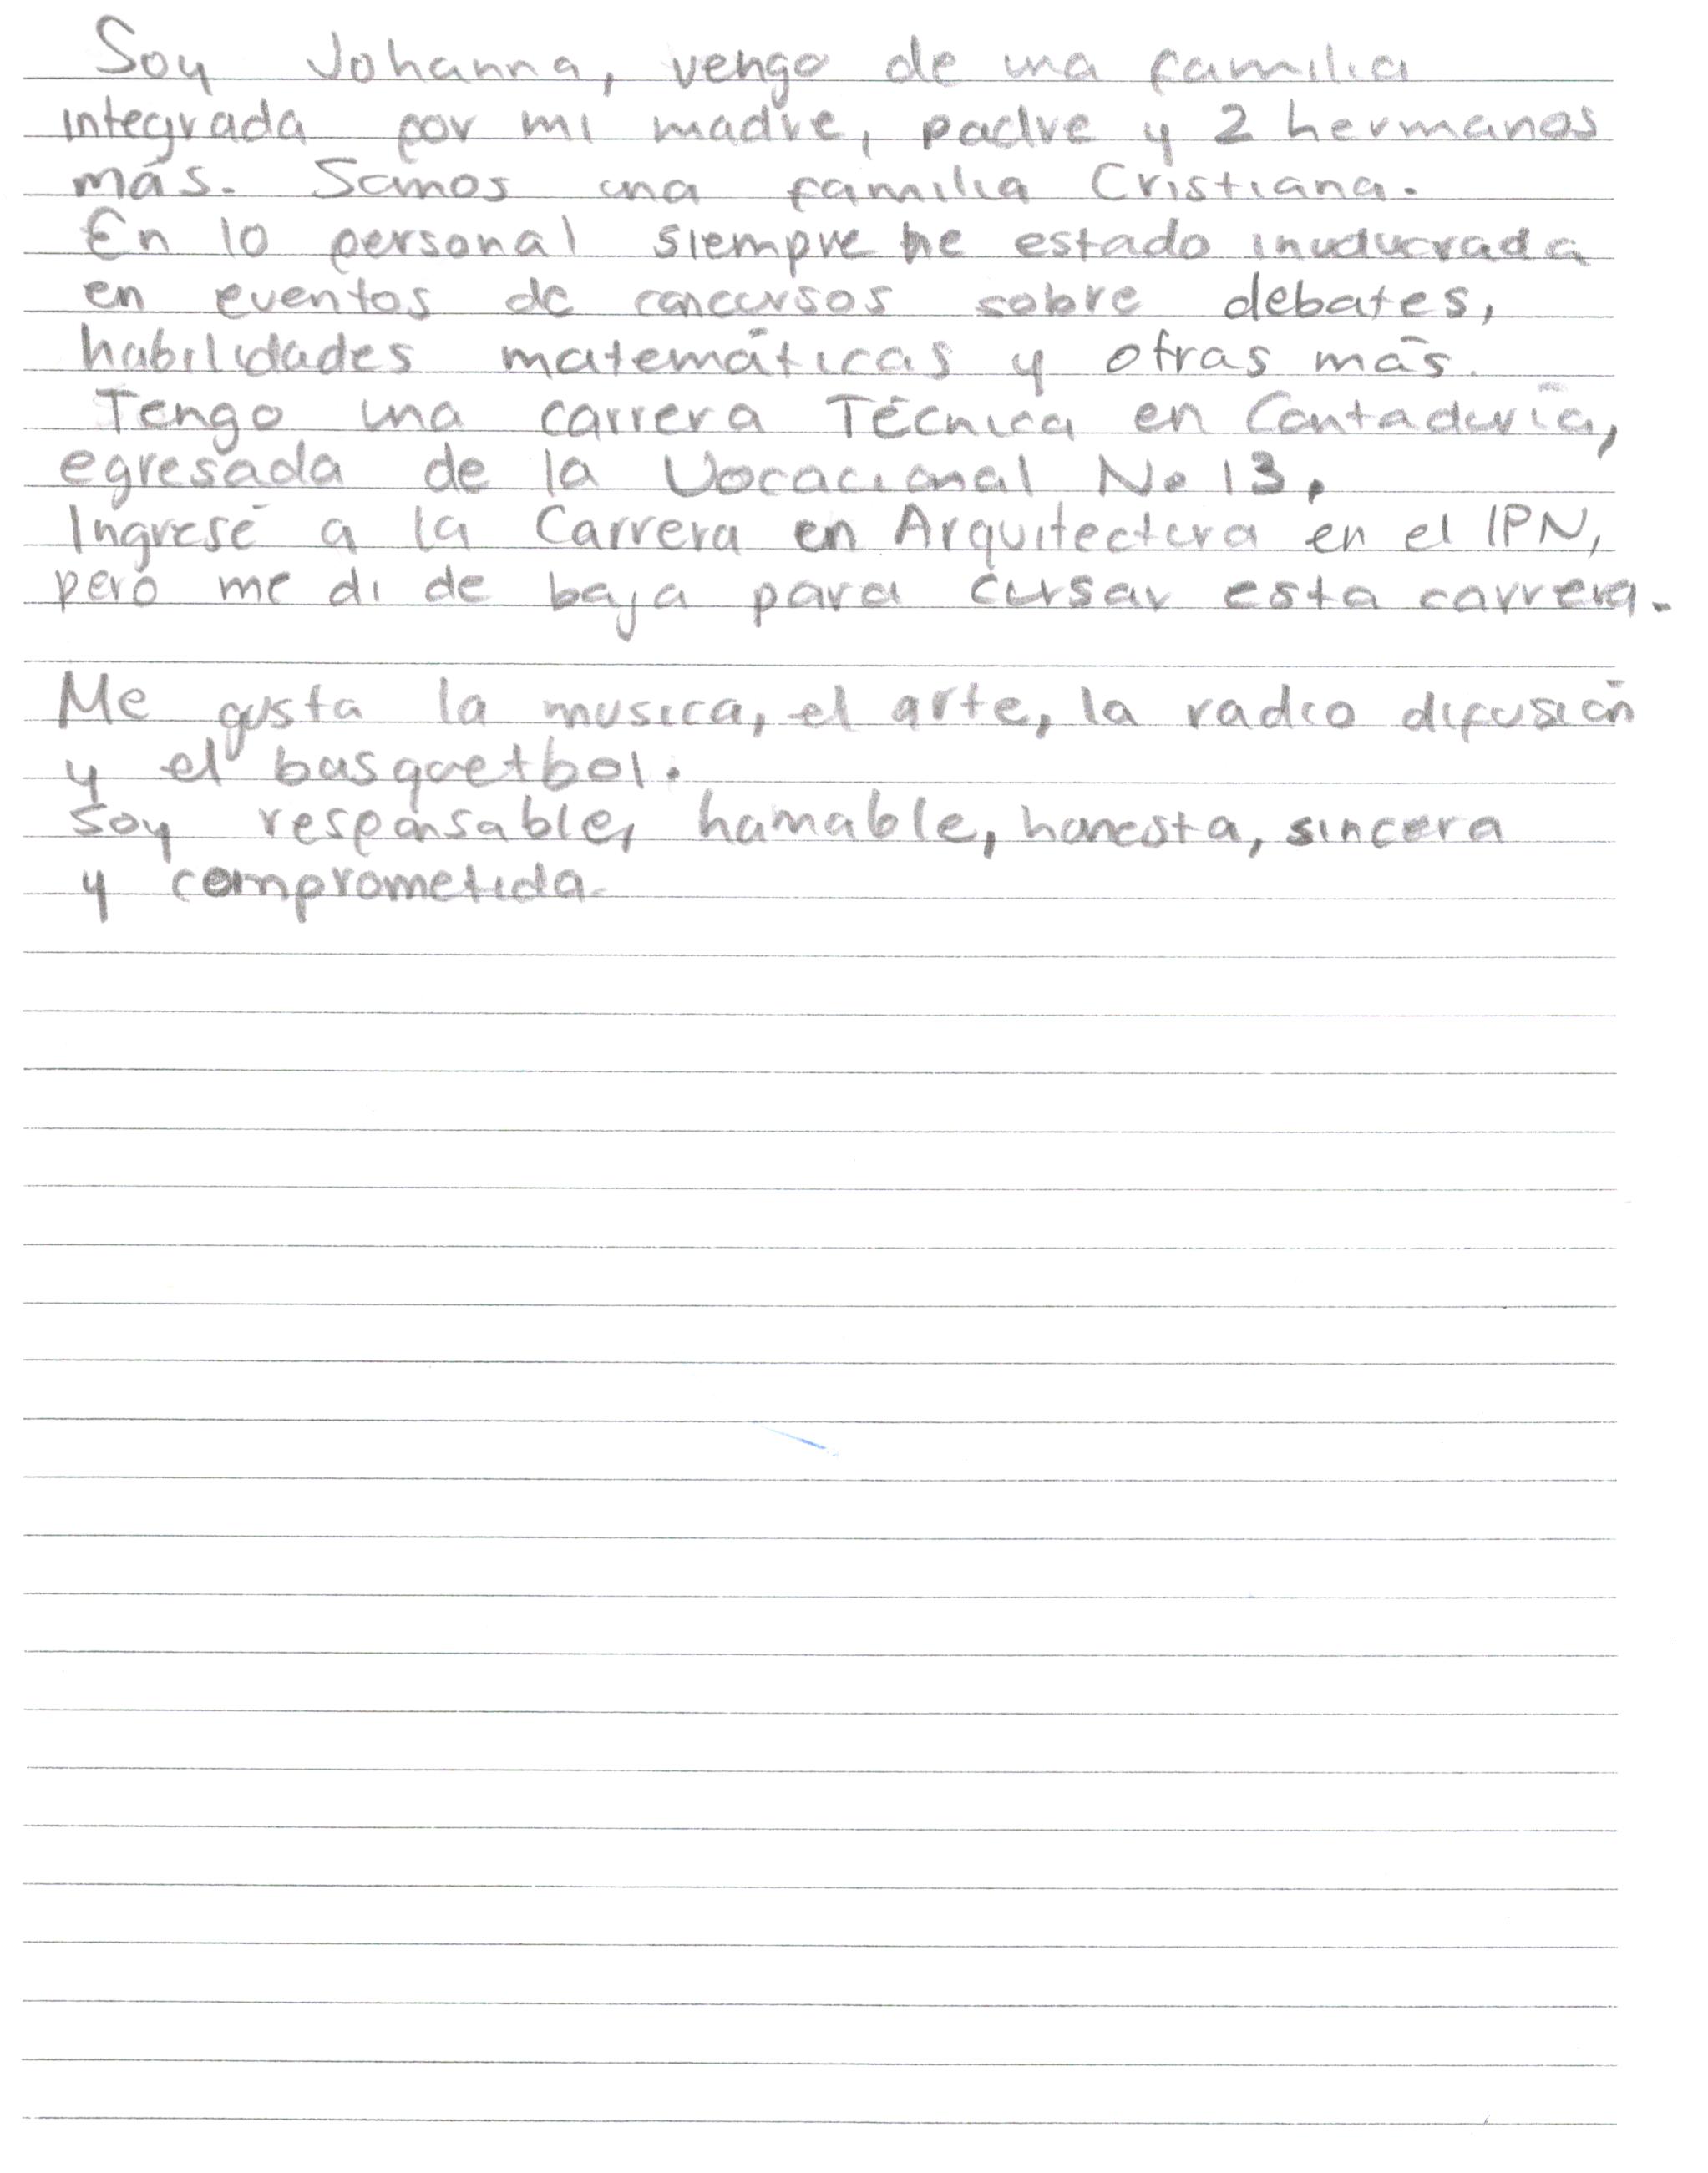 Soy Johanna, vengo de una familia
integrada por mi madre, padre y 2 hermanos
más. Somos una familia Cristiana.
En lo personal siempre he estado inuducrada
en eventos de concursos sobre debates,
habilidades matemáticas y otras más.
Tengo una carrera Técnica en Contaduría,
egresada de la Vocacional No 13.
Ingresé a la Carrera en Arquitectura en el IPN,
pero me di de baja para cursar esta carrera.
Me gusta la musica, el arte, la radio difusión
y el basquetbol.
Soy responsable, hamable, honesta, sincera
y comprometida.